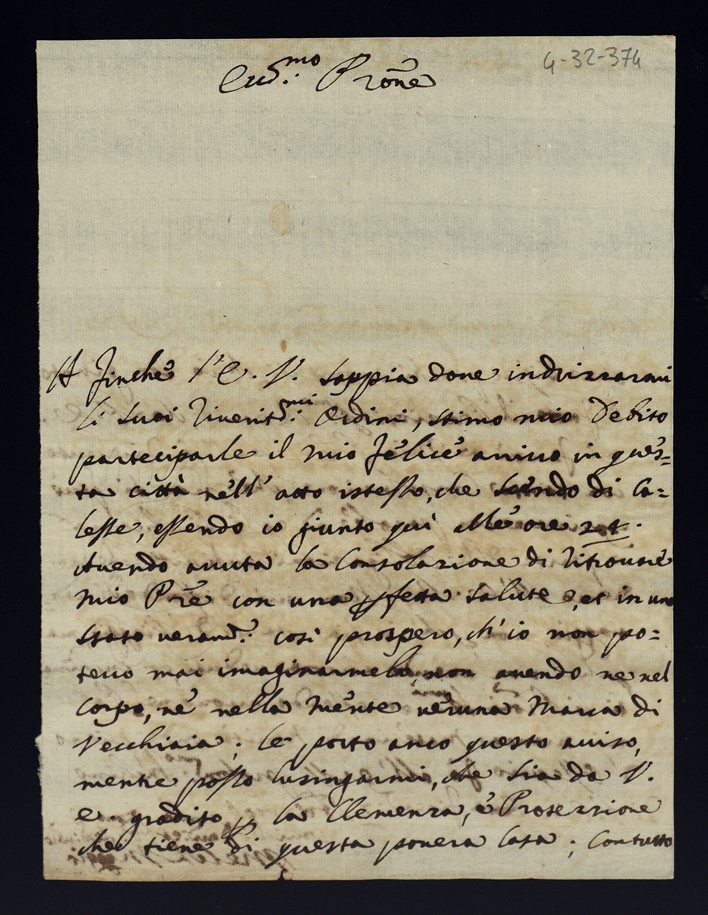 4-32-374
Ecc.mo Prõne
A finche l'E. V. sappia doue indrizzarmi
li suoi riuerit.mi ordini, stimo mio debito
participarle il mio felice arriuo in ques=
ta città nell'atto istesso, che scendo di ca=
lesse, essendo io giunto qui alle ore 24.
Auendo auuta la consolazione di ritrouare
mio Pr̃e con una pfetta salute, et in uno
stato veram.e così prospero, ch'io non po=
teuo mai imaginarmelo, non auendo ne nel
corpo, nè nella mente veruna marca di
vecchiaia; le porto anco questo auiso,
mentre posso lusingarmi, che sia da V.
E. gradito p la Clemenza, e Protezzione
che tiene di questa pouera Casa; contutto